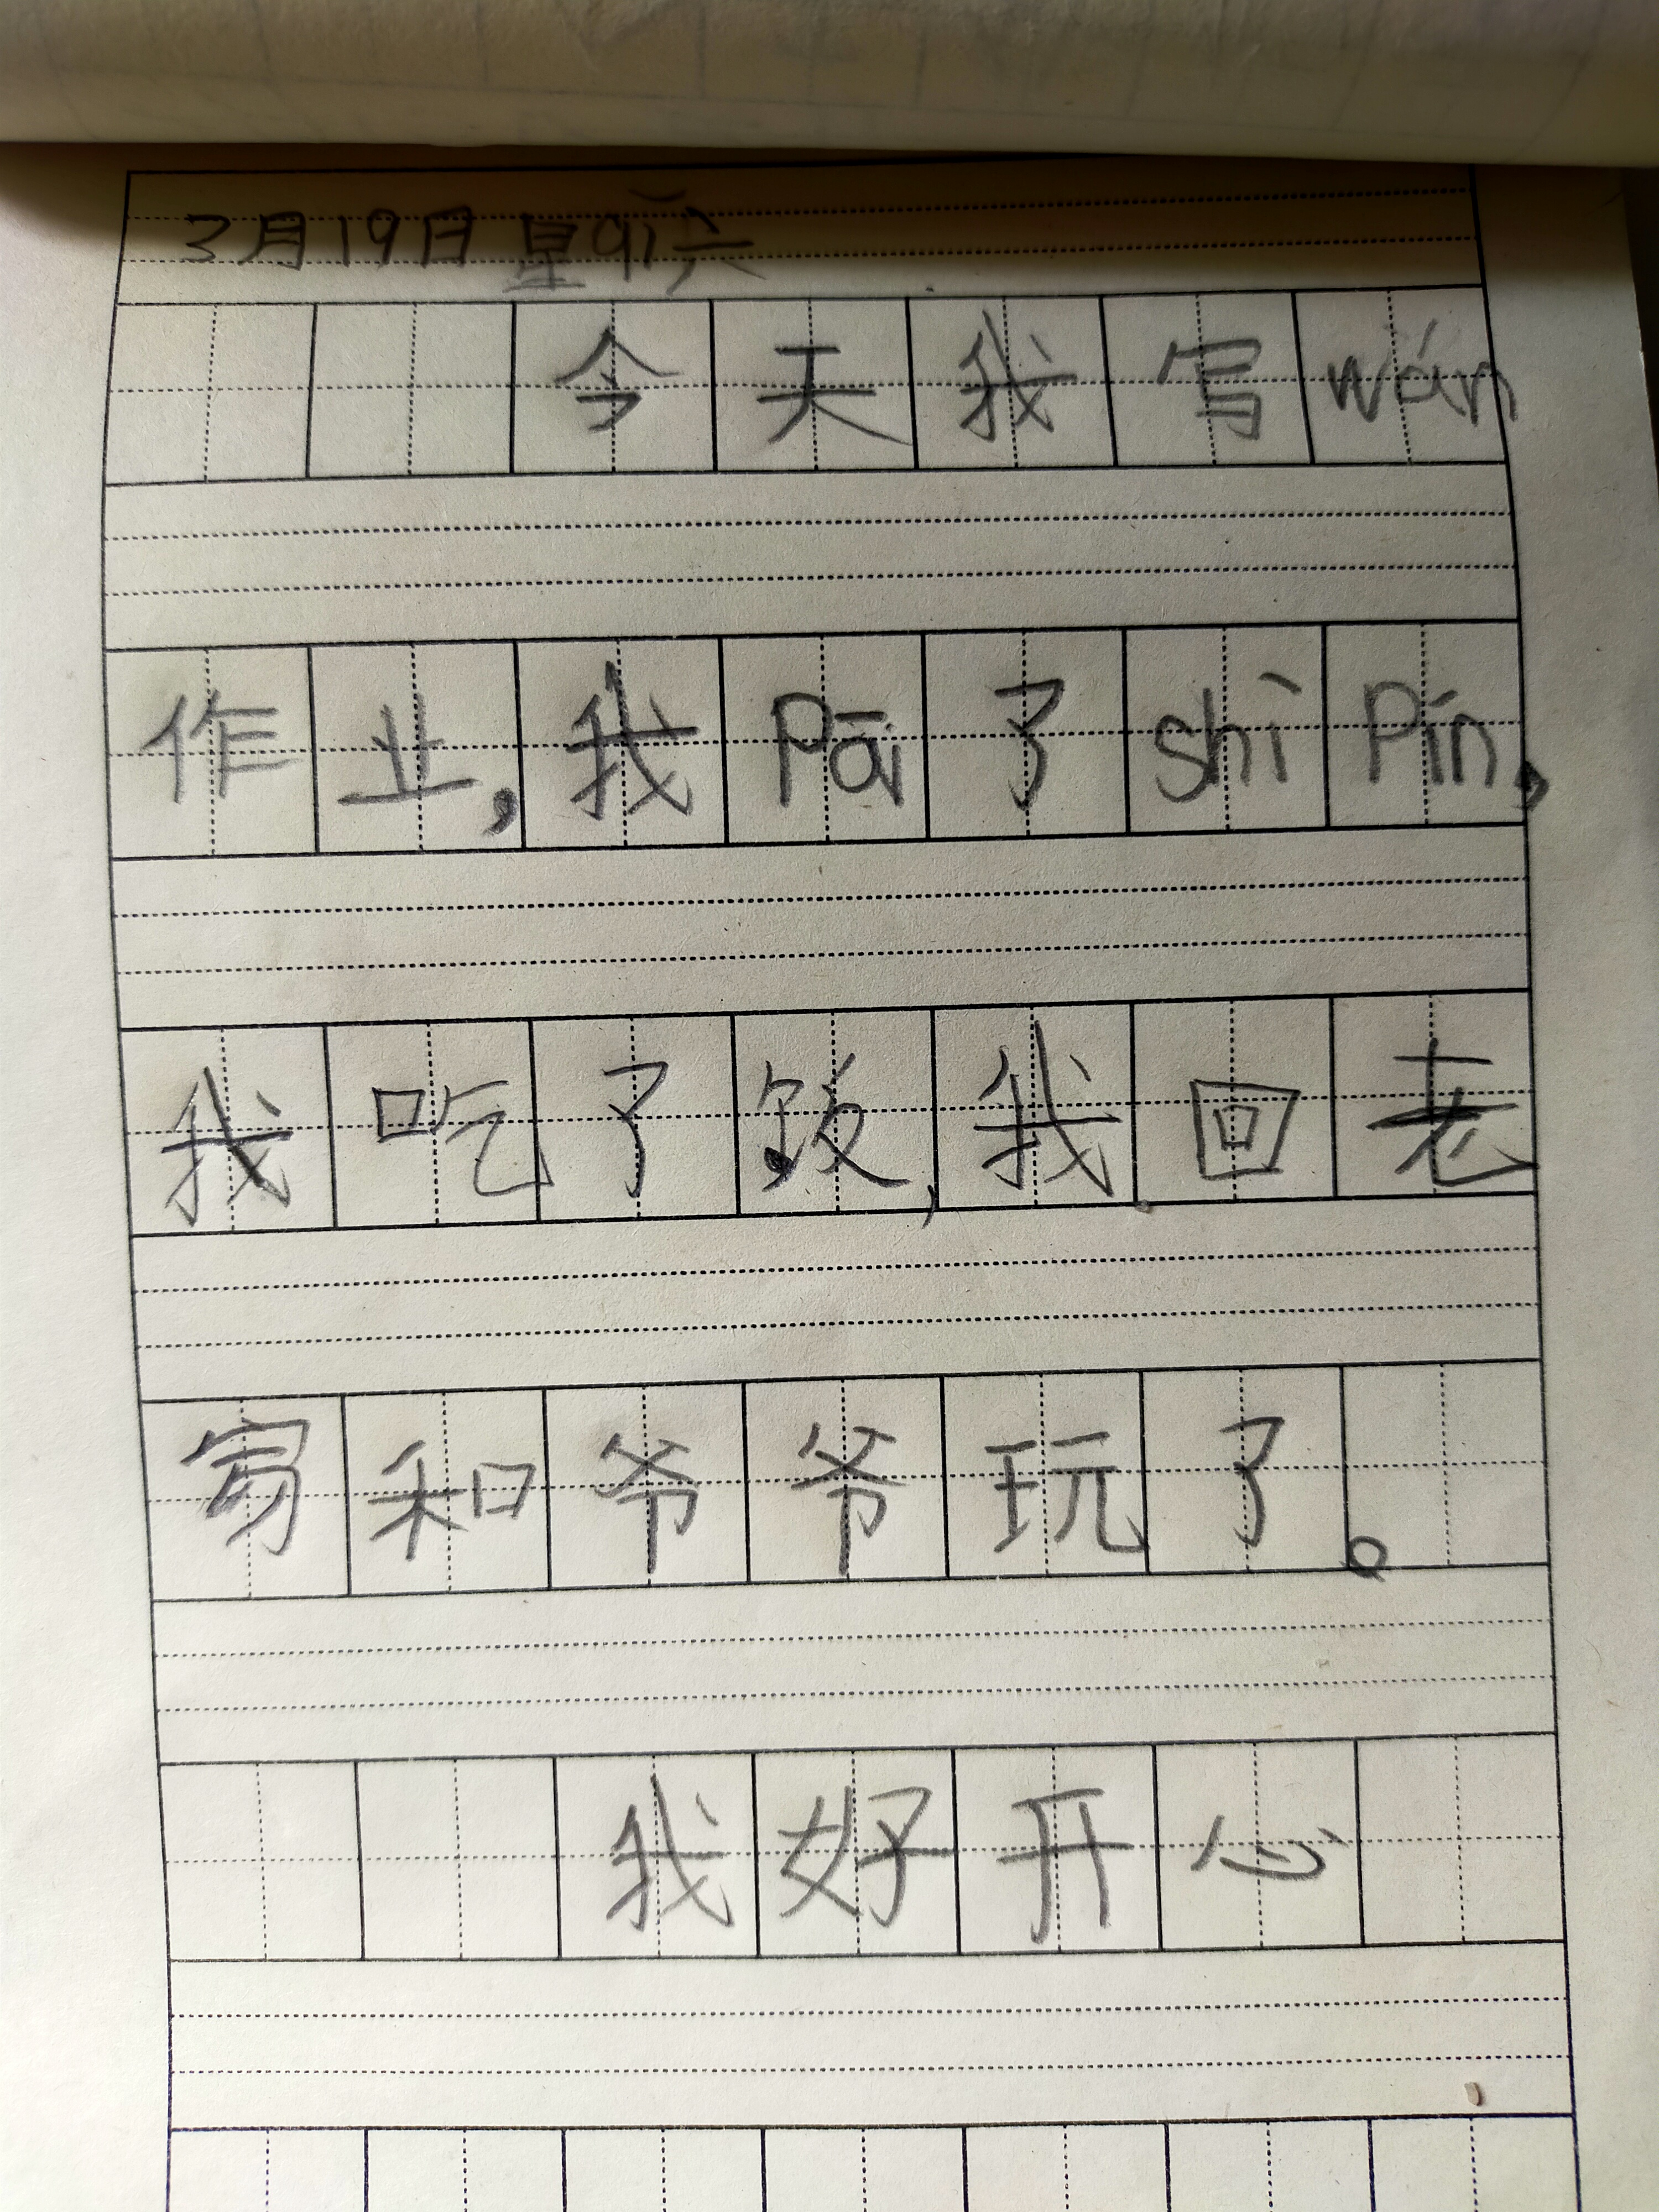 3月19日 星qī六
今天我写wán
作业,我Pāi了shì Pín,
我吃了饭,我回老
家和爷爷玩了。
我好开心